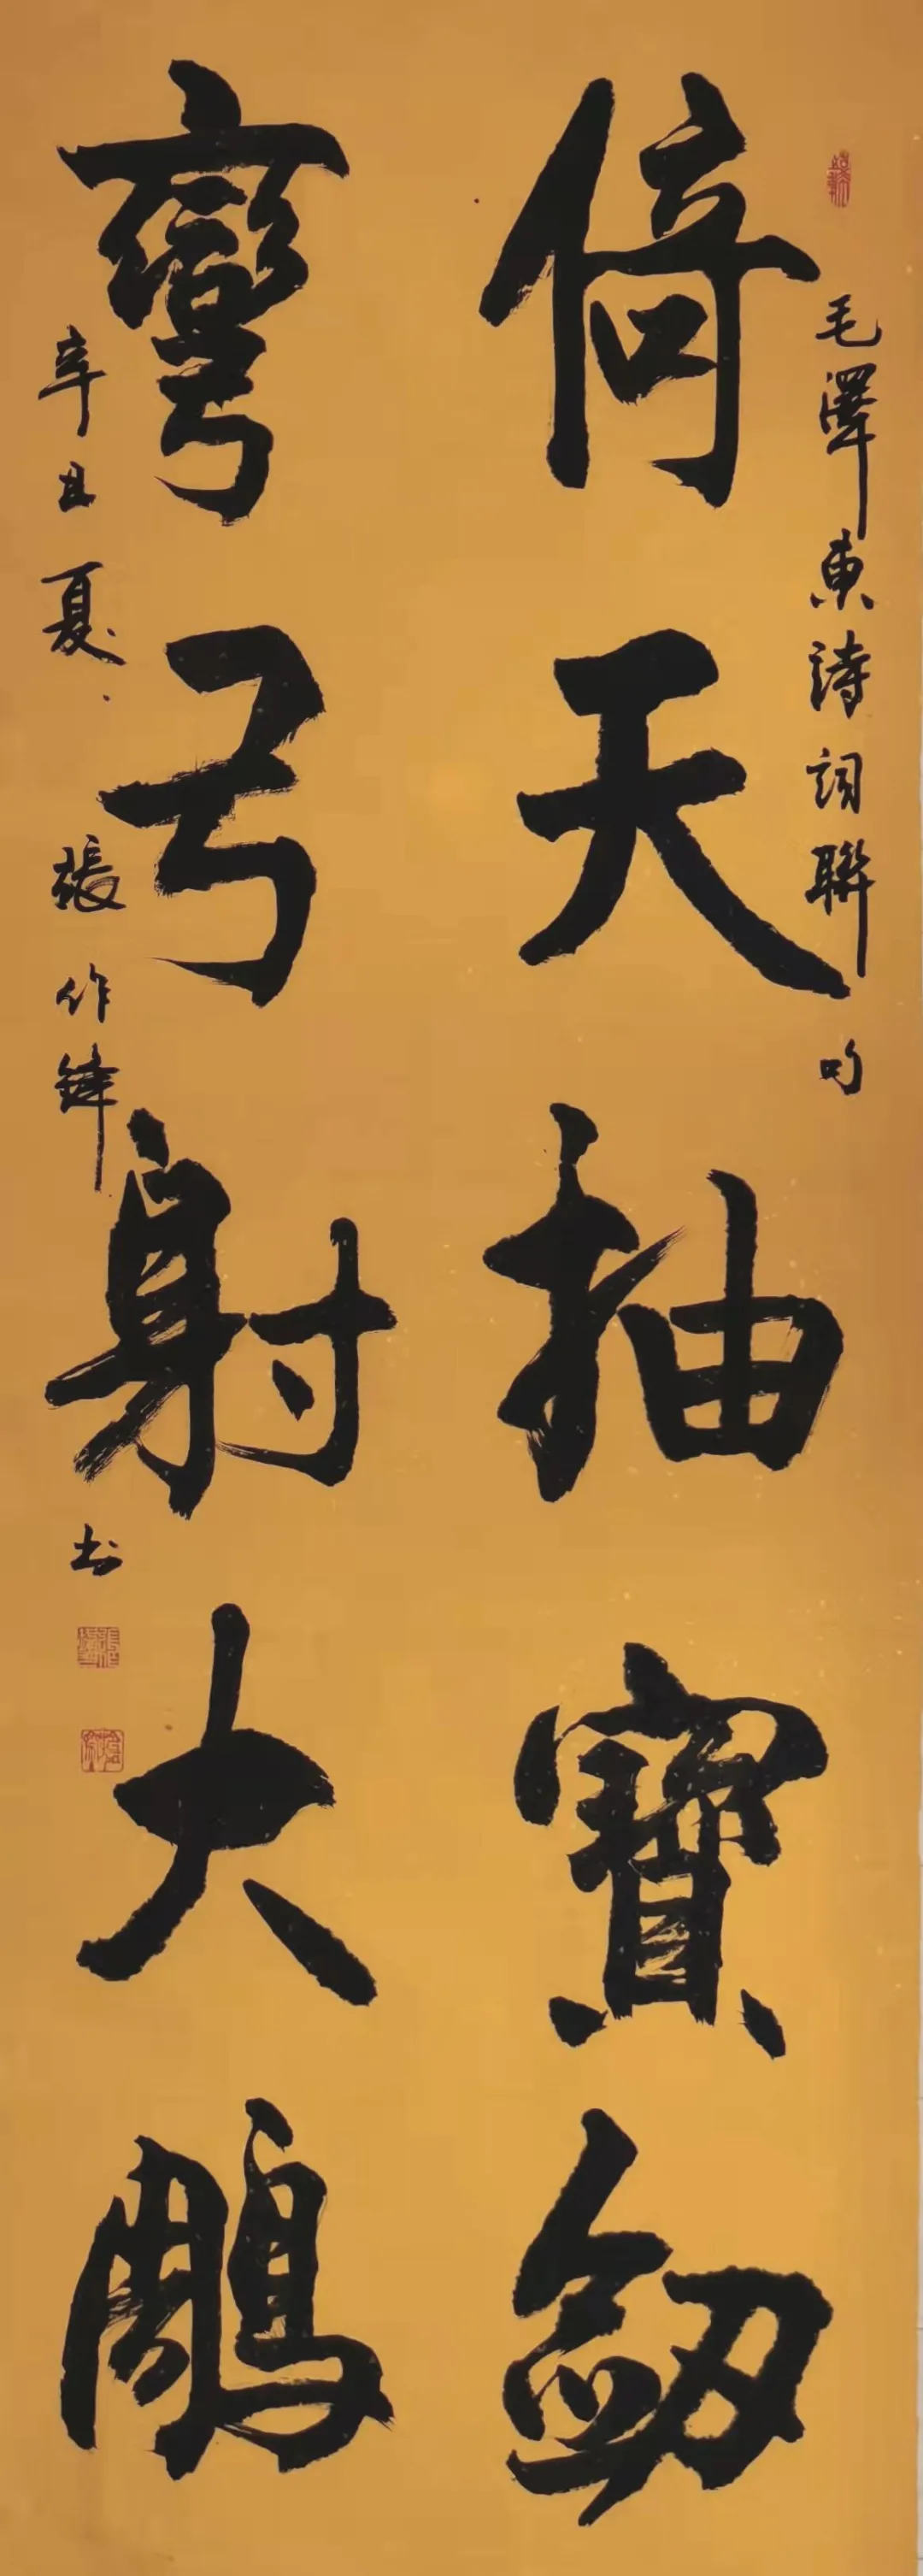 毛澤東詩詞聯句
倚天抽寶劒
彎弓射大鵰
辛丑夏張作鋒书